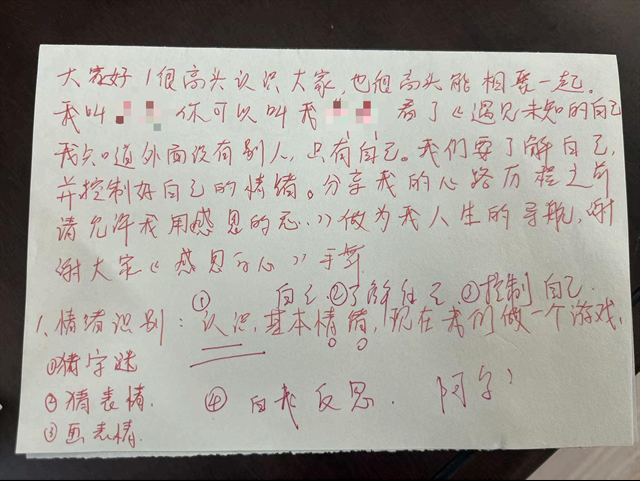 大家好！很高兴认识大家，也很高兴能相聚一起。
我叫 你可以叫我 看了《遇见未知的自己
我知道外面没有别人，只有自己。我们要了解自己，
并控制好自己的情绪。分享我的心路历程之前
请允许我用感恩的心..》做为我人生的导航，谢
谢大家《感恩的心》手舞
① 自己②了解自己③控制自己.
1、情绪识别：认识，基本情绪，现在我们做一个游戏，
①猜字谜
②猜表情. ④自我反思.
③画表情.